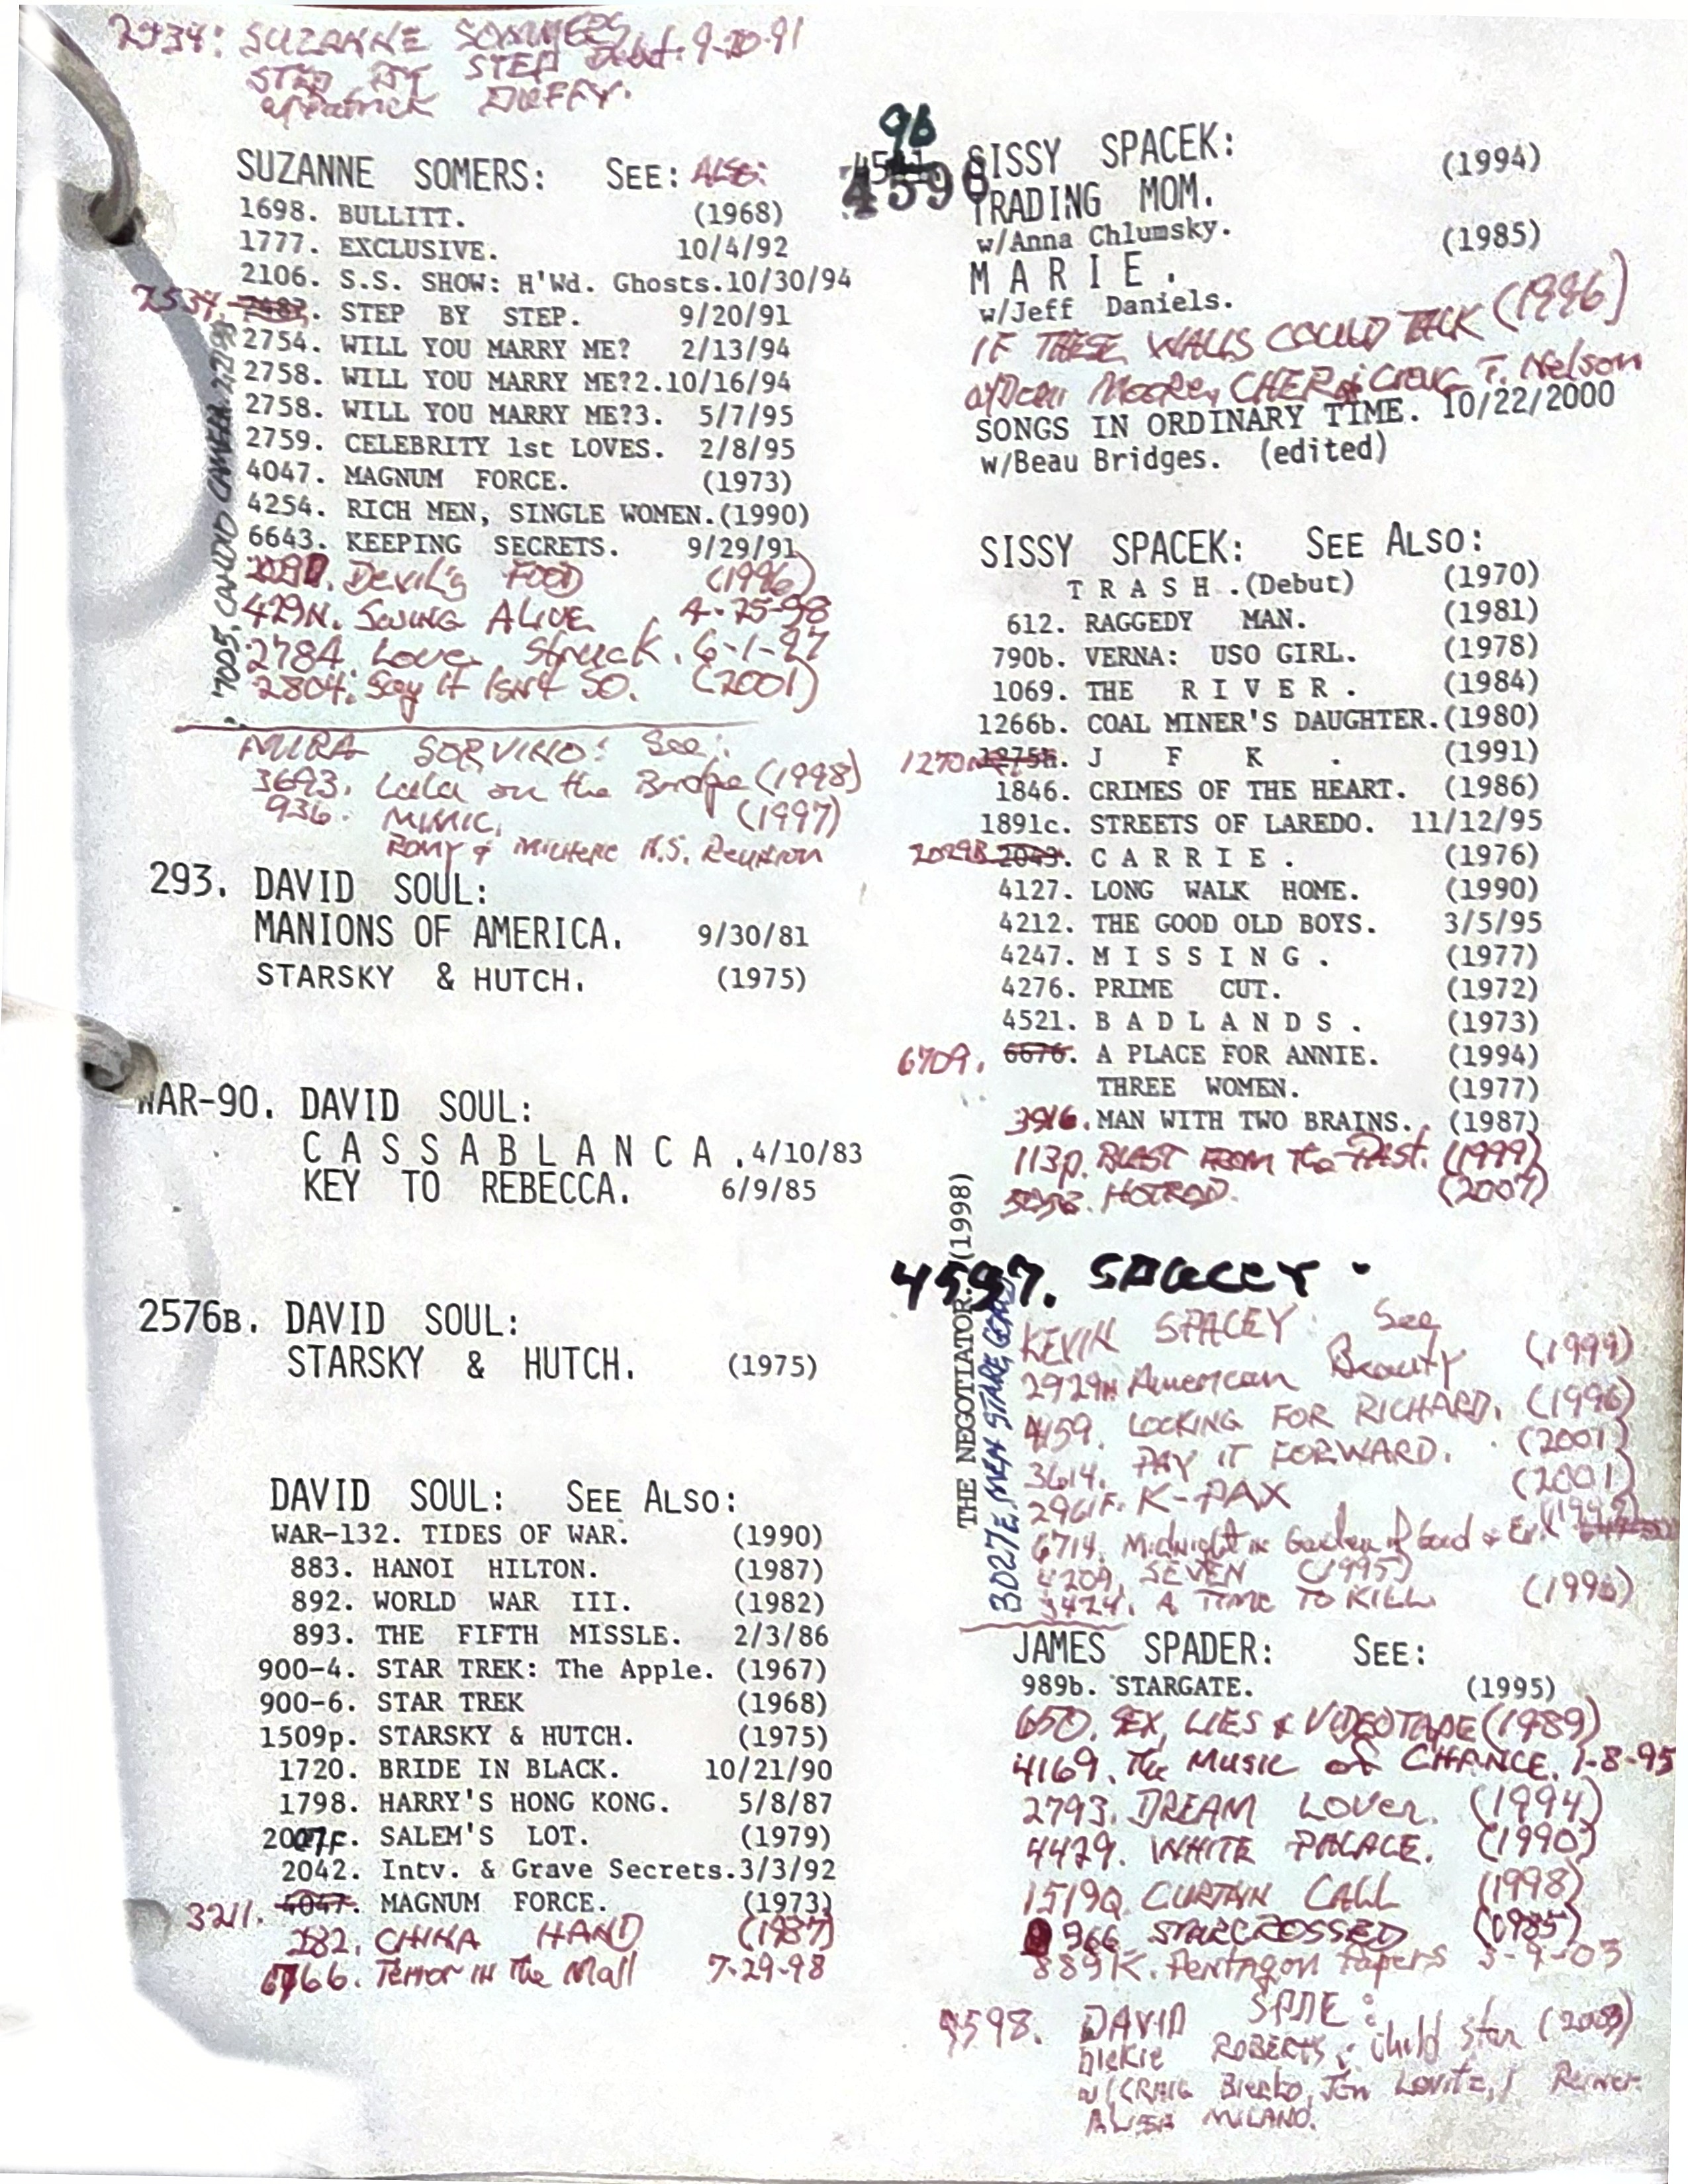 2934: SUZANNE SOMMERS
STEP BY STEP Debut. 9-20-91
w/Patrick DUFFY.
SUZANNE SOMERS: SEE: ALSO:
1698. BULLITT. (1968)
1777. EXCLUSIVE. 10/4/92
2106. S.S. SHOW: H'Wd. Ghosts. 10/30/94
2534. STEP BY STEP. 9/20/91
2754. WILL YOU MARRY ME? 2/13/94
2758. WILL YOU MARRY ME?2. 10/16/94
2758. WILL YOU MARRY ME?3. 5/7/95
2759. CELEBRITY 1st LOVES. 2/8/95
4047. MAGNUM FORCE. (1973)
4254. RICH MEN, SINGLE WOMEN. (1990)
6643. KEEPING SECRETS. 9/29/91
Devil's FOOD (1996)
429N. SEEING ALIVE 4-25-98
2784. Love Struck. 6-1-97
2804. Say It Isn't SO. (2001)
7005, CANDID CAMERA
MIRA SORVINO: See:
3693. Lulu on the Bridge (1998)
936. MIMIC. (1997)
ROMY & MICHELE H.S. Reunion
293. DAVID SOUL:
MANIONS OF AMERICA. 9/30/81
STARSKY & HUTCH. (1975)
WAR-90. DAVID SOUL:
C A S S A B L A N C A . 4/10/83
KEY TO REBECCA. 6/9/85
2576B. DAVID SOUL:
STARSKY & HUTCH. (1975)
DAVID SOUL: SEE ALSO:
WAR-132. TIDES OF WAR. (1990)
883. HANOI HILTON. (1987)
892. WORLD WAR III. (1982)
893. THE FIFTH MISSLE. 2/3/86
900-4. STAR TREK: The Apple. (1967)
900-6. STAR TREK (1968)
1509p. STARSKY & HUTCH. (1975)
1720. BRIDE IN BLACK. 10/21/90
1798. HARRY'S HONG KONG. 5/8/87
2007F. SALEM'S LOT. (1979)
2042. Intv. & Grave Secrets. 3/3/92
3211. 4047. MAGNUM FORCE. (1973)
282. CHINA HAND (1987)
6766. Terror IN The Mall 7-29-98
4596 SISSY SPACEK: (1994)
TRADING MOM.
w/Anna Chlumsky.
M A R I E . (1985)
w/Jeff Daniels.
IF THESE WALLS COULD TALK (1996)
w/Demi Moore, CHER & Craig T. Nelson
SONGS IN ORDINARY TIME. 10/22/2000
w/Beau Bridges. (edited)
SISSY SPACEK: SEE ALSO:
T R A S H . (Debut) (1970)
612. RAGGEDY MAN. (1981)
790b. VERNA: USO GIRL. (1978)
1069. THE R I V E R . (1984)
1266b. COAL MINER'S DAUGHTER. (1980)
J F K . (1991)
1846. CRIMES OF THE HEART. (1986)
1891c. STREETS OF LAREDO. 11/12/95
2029B 2043. C A R R I E . (1976)
4127. LONG WALK HOME. (1990)
4212. THE GOOD OLD BOYS. 3/5/95
4247. M I S S I N G . (1977)
4276. PRIME CUT. (1972)
4521. B A D L A N D S . (1973)
6709. 6676. A PLACE FOR ANNIE. (1994)
THREE WOMEN. (1977)
3916. MAN WITH TWO BRAINS. (1987)
113p. BLAST FROM The PAST. (1999)
HOTROD. (2007)
4597. SPACEY.
THE NEGOTIATOR. (1998)
3027E, MEN STARE, GOATS
KEVIN SPACEY: See
2929N American Beauty (1999)
4159. LOOKING FOR RICHARD. (1996)
3614. PAY IT FORWARD. (2001)
2961F. K-PAX (2001)
6714. Midnight in Garden of Good & Evil
4209. SEVEN (1995)
3424. A TIME TO KILL (1996)
JAMES SPADER: SEE:
989b. STARGATE. (1995)
650. SEX, LIES & VIDEOTAPE (1989)
4169. The MUSIC of CHANCE. 1-8-95
2793. DREAM LOVER. (1994)
4429. WHITE PALACE. (1990)
1519Q. CURTAIN CALL (1998)
966 STARCROSSED (1985)
889K. Pentagon Papers 3-9-03
4598. DAVID SPADE:
DICKIE ROBERTS: Child Star (2003)
w/CRAIG Bierko, Jon Lovitz, Reiner
ALYSSA MILANO.